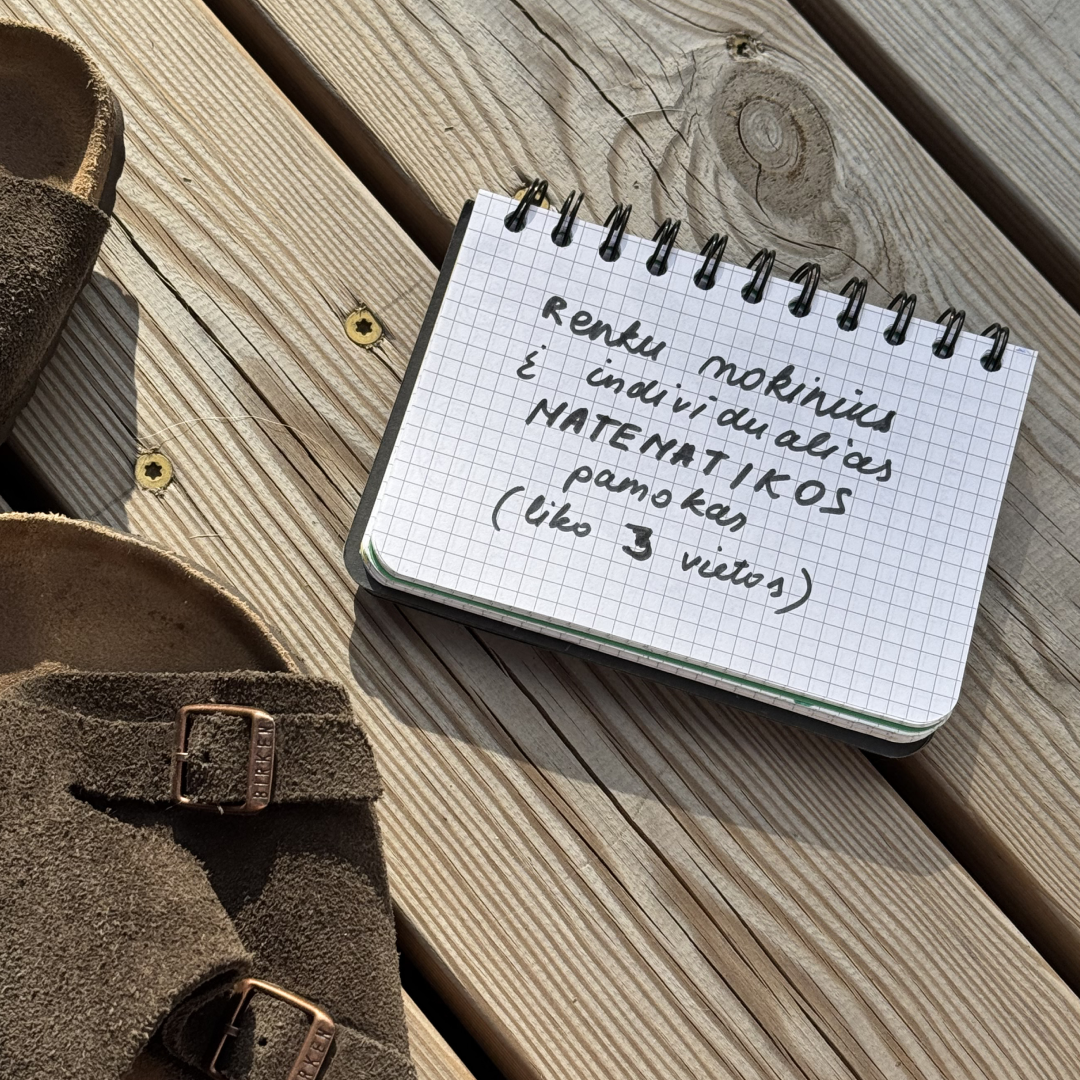 Renku mokinius
į individualias
MATEMATIKOS
pamokas
(liko 3 vietos)
BIRKEN
BIRKEN